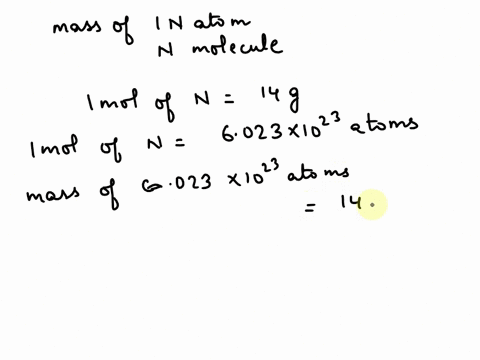 mass of 1 N atom
N molecule
1 mol of N = 14 g
1 mol of N = 6.023 × 10²³ atoms
mass of 6.023 × 10²³ atoms
= 14.